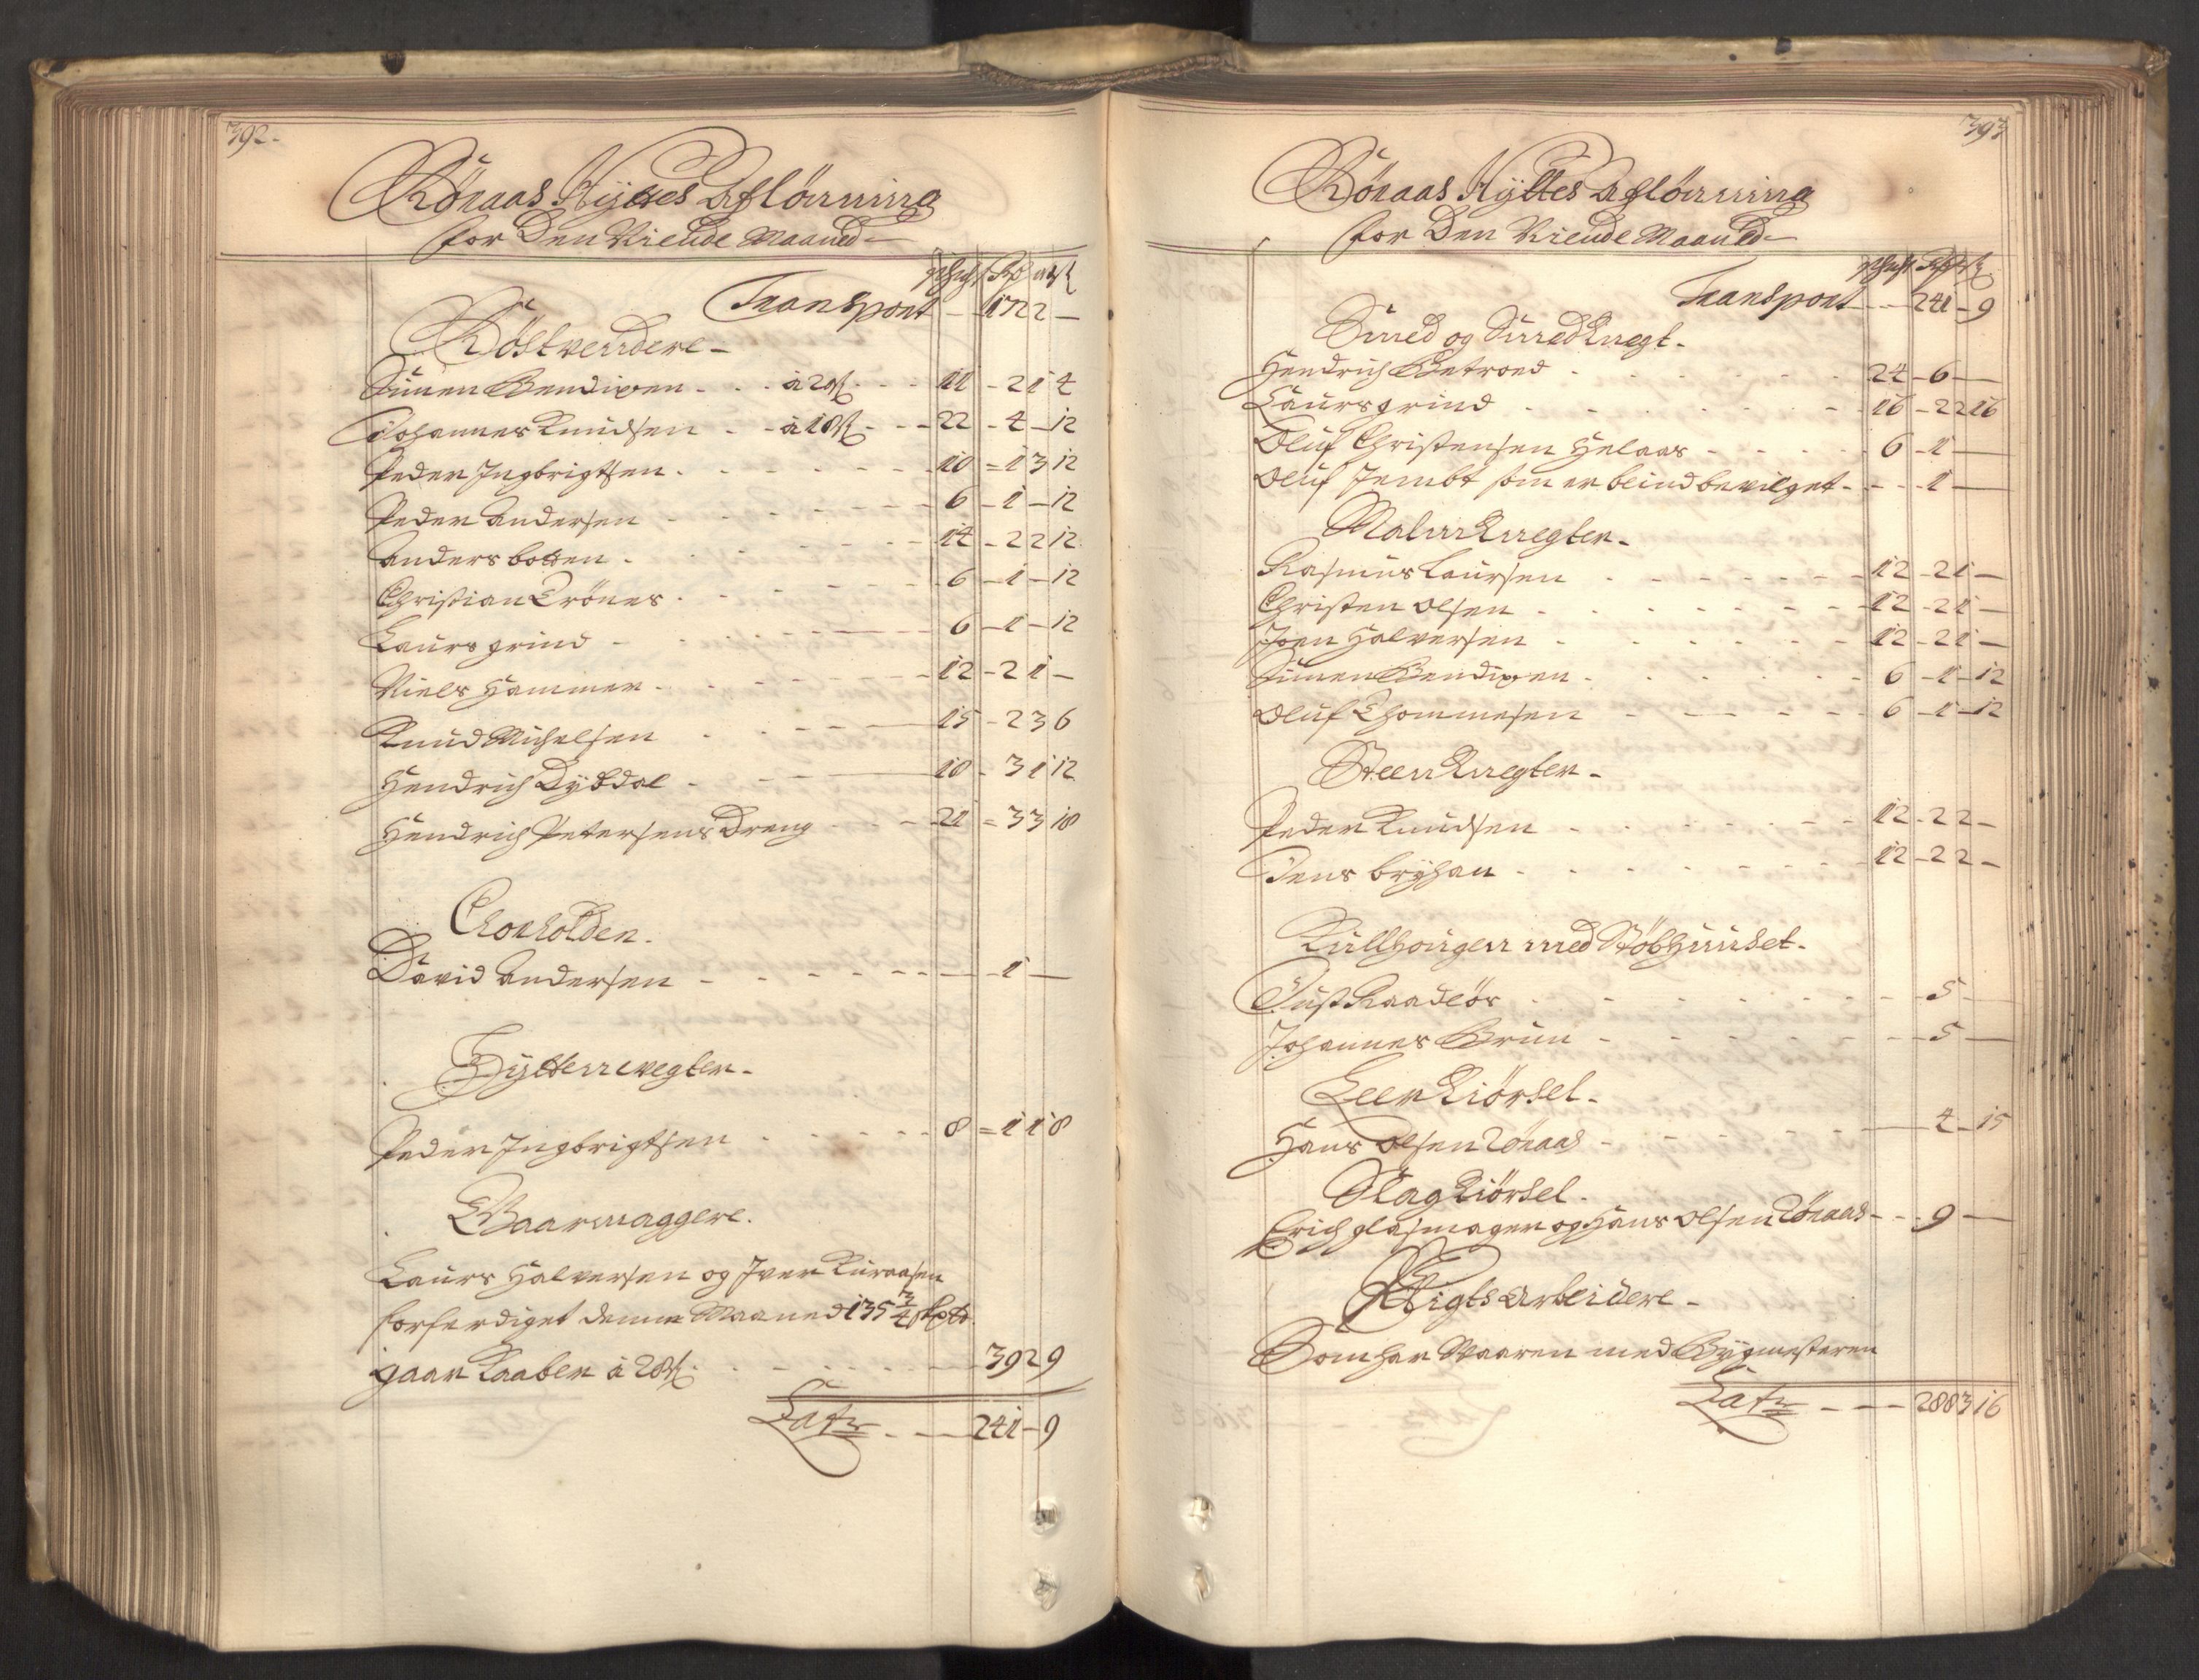 392.
Röraas Hyttes Aflönning
for Den Niende Maaned
Transport - 172 2 -
Röstvendere -
Simen Bendixen - à 20 s - 11 - 2 1 4
Johannes Knudsen - à 18 s - 22 - 4 - 12
Peder Ingbrigtsen - 10 - 1 3 12
Peder Andersen - 6 - 1 - 12
Anders botten - 14 - 2 2 12
Christian Trönes - 6 - 1 - 12
Laurs grind - 6 - 1 - 12
Niels Hammer - 12 - 2 1 -
Knud Michelsen - 15 - 2 3 6
Hendrich Dybdal - 18 - 3 1 12
Hendrich Petersens Dreng - 21 - 3 3 18
David Andersen - 1 -
Hyttenwegter -
Peder Ingbrigtsen - 8 - 1 1 8
Gaarmaggere.
Laurs Halversen og Iver
forferdiget denne Maaned 135 3/4
gaar Kaaber à 28 s - 39 2 9
Latr - 241 - 9
393
Röraas Hyttes Aflönning
for Den Niende Maaned
Transport - 241 - 9
Smed og Smedknegt -
Hendrich Betroed - 24 - 6 -
Laurs grind - 16 - 2 2 16
Oluf Christensen Helaas - 6 - 1 -
Oluf Jembt som er blind bevilget - 1 -
Malmknegter -
Rasmus Laursen - 12 - 2 1 -
Christen Olsen - 12 - 2 1 -
Joen Halversen - 12 - 2 1 -
Simen Bendixen - 6 - 1 - 12
Oluf Thommesen - 6 - 1 - 12
Steenknegter -
Peder Knudsen - 12 - 2 2 -
Jens bryhan - 12 - 2 2 -
Kullhougen med Stöbhuuset -
Just Kaadeör - 5 -
Johannes Brun - 5 -
Leer Kiörsel -
Hans Olsen Röraas - 4 - 15
Slag Kiörsel -
Erich glasmager og Hans Olsen Röraas - 9 -
Pligts Arbeidere -
Som har Waaren med Bygmesteren
Latr - 288 3 16